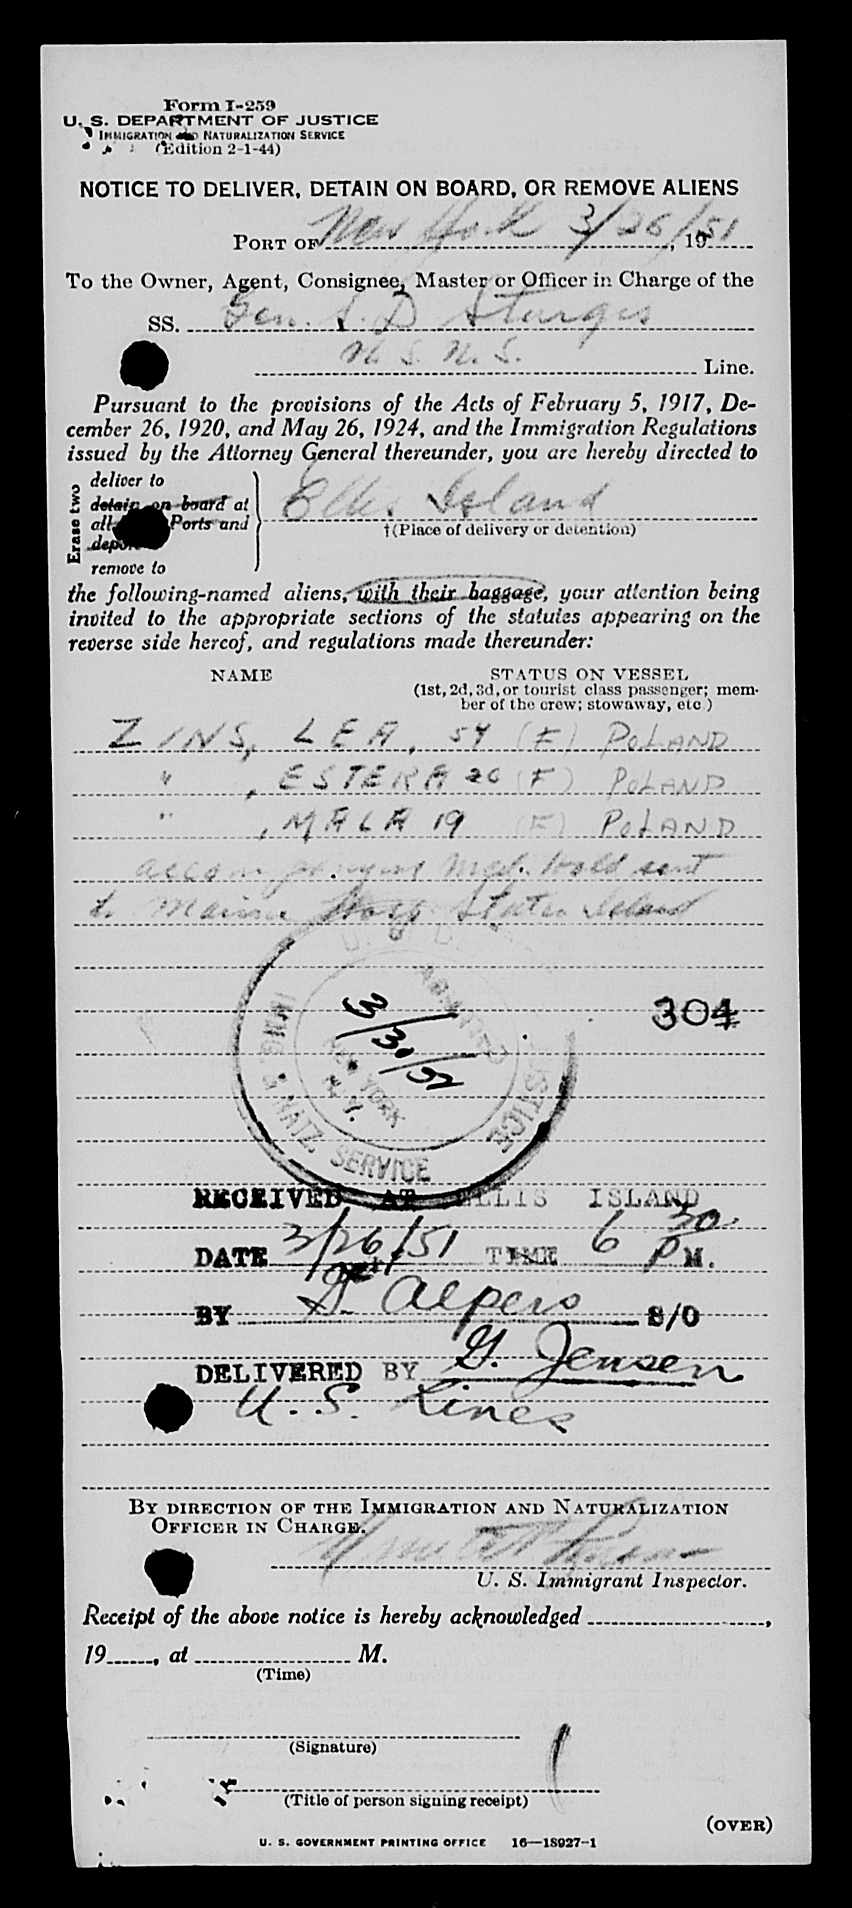 Form I-259
U. S. DEPARTMENT OF JUSTICE
IMMIGRATION AND NATURALIZATION SERVICE
(Edition 2-1-44)
NOTICE TO DELIVER, DETAIN ON BOARD, OR REMOVE ALIENS
PORT OF New York 3/26/, 1951
To the Owner, Agent, Consignee, Master or Officer in Charge of the
SS. Gen. S. D Sturgis
Line.
Pursuant to the provisions of the Acts of February 5, 1917, De-
cember 26, 1920, and May 26, 1924, and the Immigration Regulations
issued by the Attorney General thereunder, you are hereby directed to
Erase two
deliver to
detain on board at
all Ports and
remove to
Ellis Island
†(Place of delivery or detention)
the following-named aliens, with their baggage, your attention being
invited to the appropriate sections of the statutes appearing on the
reverse side hereof, and regulations made thereunder:
NAME STATUS ON VESSEL
(1st, 2d, 3d, or tourist class passenger; mem-
ber of the crew; stowaway, etc.)
ZINS, LEA, 54 (F) POLAND
" , ESTERA 20 (F) POLAND
" , MALA 19 (F) POLAND
accompanying Med. Hold sent
to Marine Hosp Staten Island
304
3/30/51
NEW YORK
N. Y.
IMMIG. & NATZ. SERVICE
JUSTICE
RECEIVED AT ELLIS ISLAND
DATE 3/26/51 TIME 6 30 P M.
BY D. Alpers S/O
DELIVERED BY G. Jensen
U. S. Lines
BY DIRECTION OF THE IMMIGRATION AND NATURALIZATION
OFFICER IN CHARGE.
U. S. Immigrant Inspector.
Receipt of the above notice is hereby acknowledged ,
19 , at M.
(Time)
(Signature)
(Title of person signing receipt)
(OVER)
U. S. GOVERNMENT PRINTING OFFICE 16—18927-1